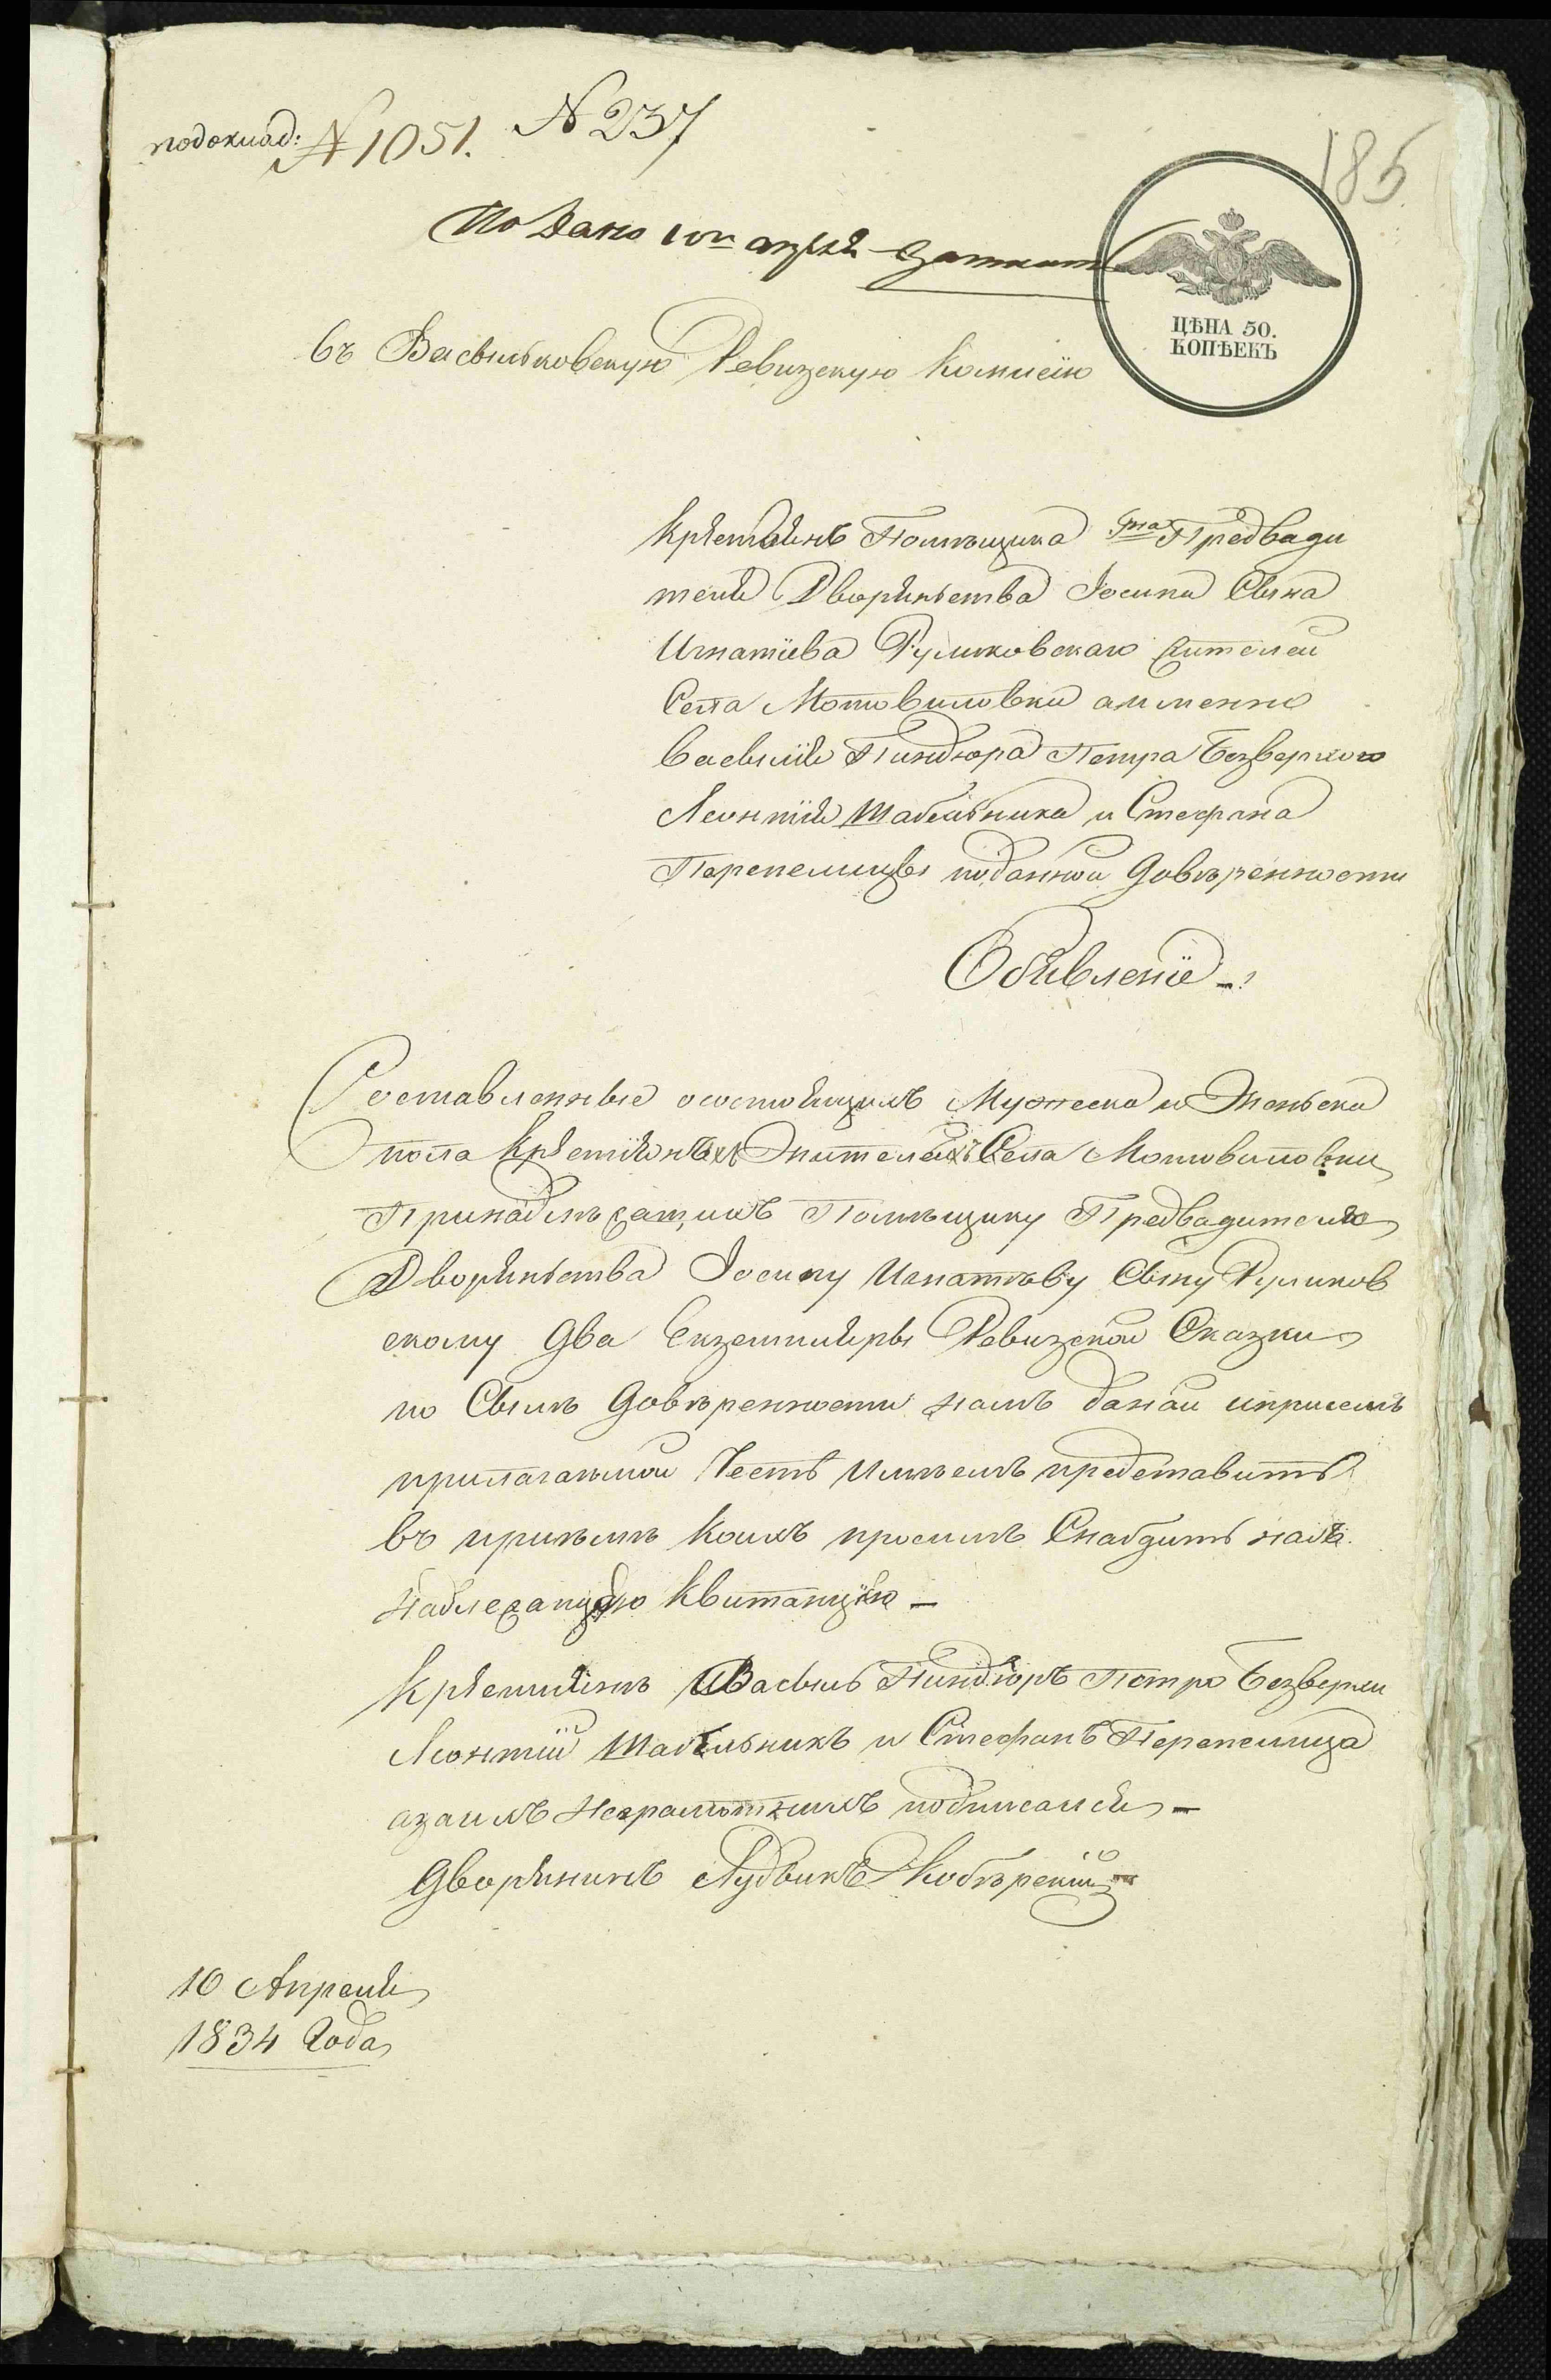 подоклад: № 1051. № 237
185
Подано 10го апреля
ЦѢНА 50.
КОПѢЕКЪ
Въ Васильковскую Ревизскую Комисію
Крѣстянъ Помѣщика Гна Предвади
теля Дворянства Іосипа Сына
Игнатіева Руликовскаго Жителей
Села Мотовиловки аименно
Васылія Пиндюра Петра Безверхого
Леонтія Шабельника и Стефана
Перепелицы поданной Довѣренности
Обявленіе
Составленные осостоящихъ Мужеска и Женьска
пола Крѣстянахъ Жителяхъ Села Мотовиловки
Принадлежащихъ Помѣщику Предвадителю
Дворянства Іосипу Игнатьеву Сыну Руликов
скому Два Екземпляры Ревизской Сказки
по Сылѣ Довѣренности намъ даной иприсемъ
прилагаемой Честь Имѣемъ представить
въ приѣмѣ Коихъ просимъ Снабдить насъ
надлежащую Квитанцію
Крѣстяне Василь Пиндюръ Петро Безверхи
Леонтій Шабельникъ и Стефанъ Перепелица
азаихъ Неграмотнихъ подписался
Дворянинъ Лудвикъ Кобѣрскій
10 Апреля
1834 Года